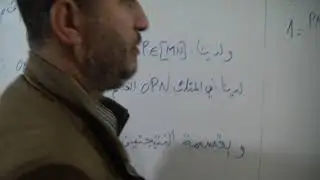 ولدينا P∈[MN]
لدينا في المثلث OPN القائم
وبقسمة النتيجتين
1 = P